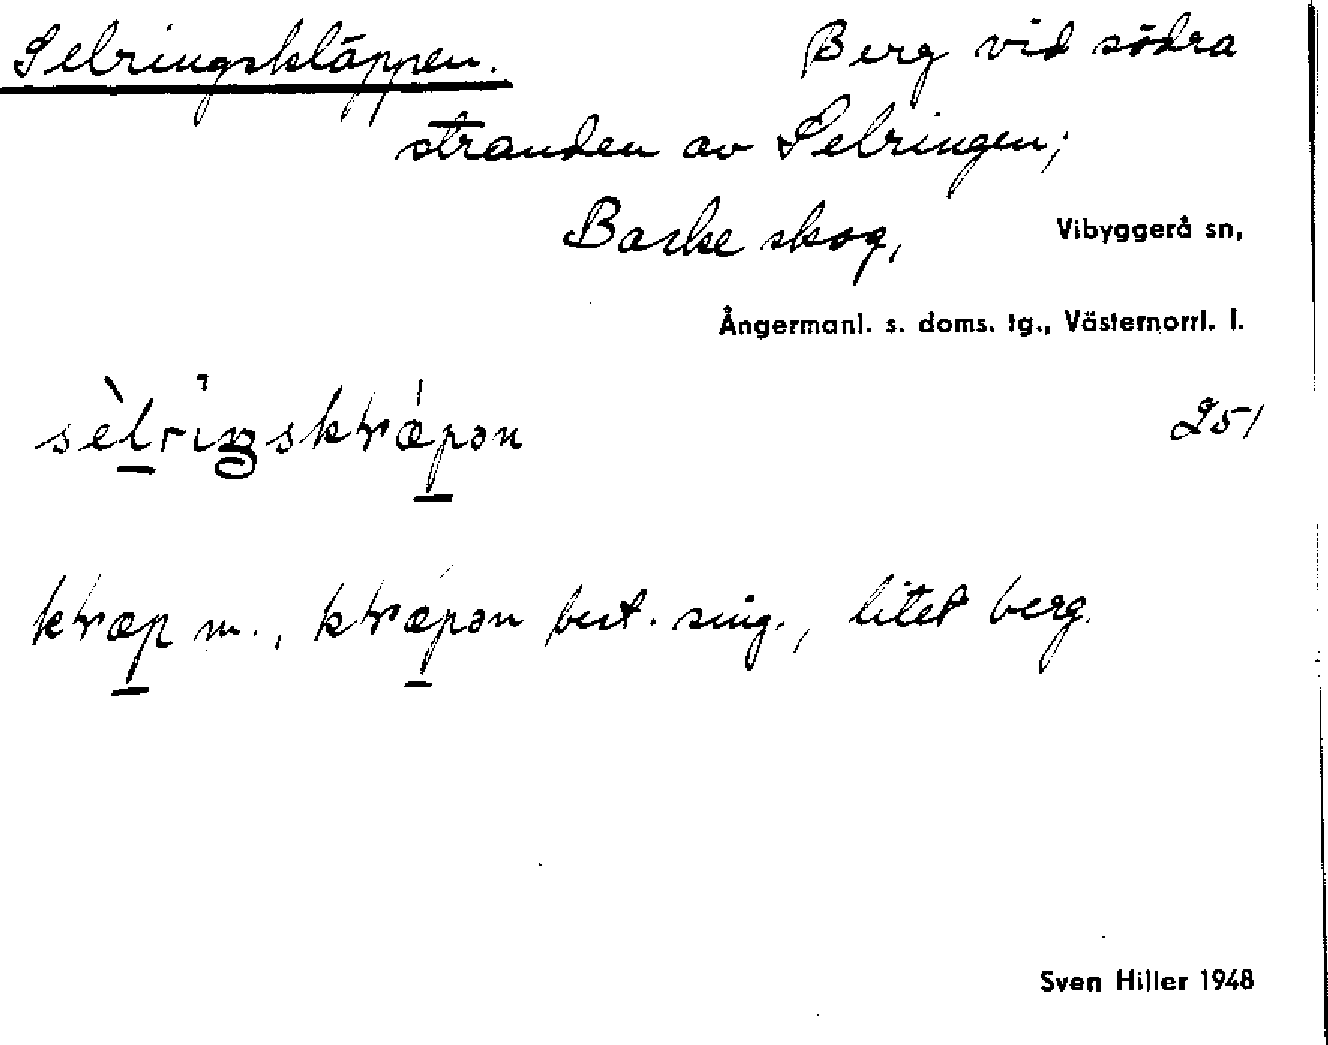 Selringskläppen. Berg vid södra
stranden av Selringen;
Backe skog, Vibyggerå sn,
Ångermanl. s. doms. tg., Västernorrl. l.
251
m., best. sing., litet berg.
Sven Hiller 1948